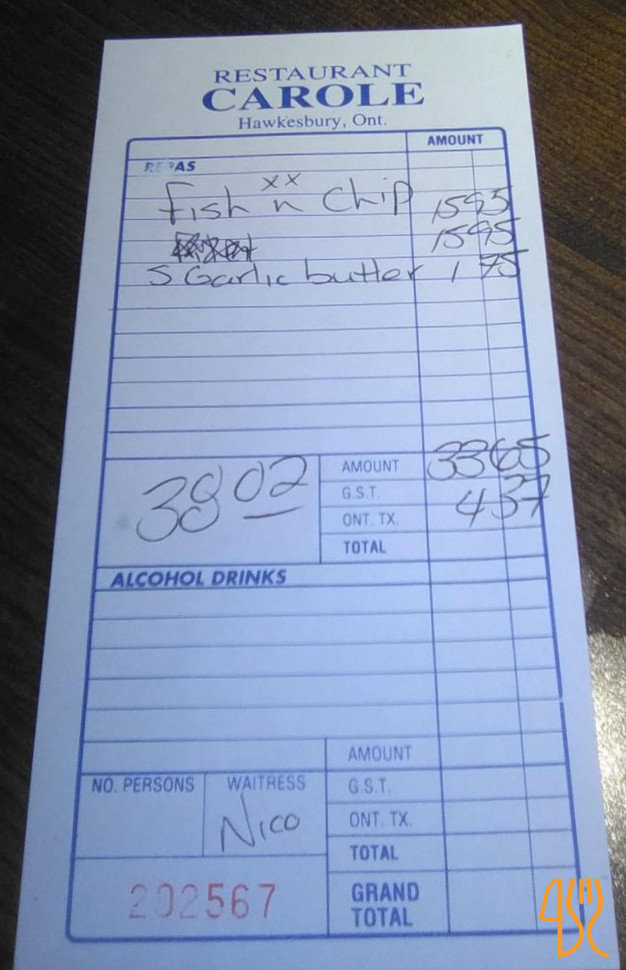 RESTAURANT
CAROLE
Hawkesbury, Ont.
AMOUNT
REPAS
xx
Fish n Chip 1595
1595
S Garlic butter 1 75
3802
AMOUNT 3365
G.S.T. 437
ONT. TX.
TOTAL
ALCOHOL DRINKS
AMOUNT
NO. PERSONS WAITRESS G.S.T.
Nico ONT. TX.
TOTAL
202567 GRAND
TOTAL